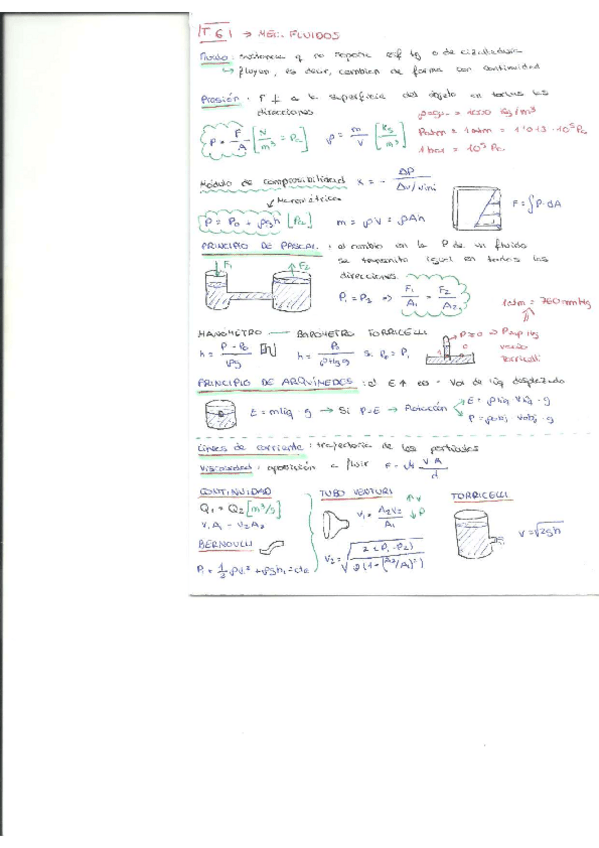 T 6 → MEC. FLUIDOS
Fluido: sustancia q no soporta esf tg o de cizalladura
↳ fluyen, es decir, cambian de forma con continuidad
Presión: F ⊥ a la superficie del objeto en todas las
direcciones
P = F/A [N/m³ = Pa] ρ = m/V [kg/m³]
Patm = 1 atm = 1'013 · 10⁵ Pa
1 bar = 10⁵ Pa
Módulo de compresibilidad x = - ΔP / ΔV/Vini
↙ Manométrica
P = P₀ + ρgh [Pa] m = ρV = ρAh F = ∫P·dA
PRINCIPIO DE PASCAL: al cambio en la P de un fluido
se transmite igual en todas las
direcciones.
F₁ F₂
P₁ = P₂ ⇒ F₁/A₁ = F₂/A₂
1 atm = 760 mmHg
MANOMETRO — BAROMETRO TORRICELLI
h = P - P₀ / ρg
vacío
Torricelli
PRINCIPIO DE ARQUIMEDES: el E↑ es = Vol de liq desplazado
E = mliq · g → Si P=E → Flotación
E = ρliq Vliq · g
P = ρobj · Vobj · g
Líneas de corriente: trayectoria de las partículas
Viscosidad: oposición a fluir F = μ VA/d
CONTINUIDAD
Q₁ = Q₂ [m³/s]
V₁A₁ = V₂A₂
BERNOULLI
P₁ = 1/2 ρV₁² + ρgh₁ = cte
TUBO VENTURI ↑V
V₁ = A₂V₂/A₁ ↓P
V₂ = √ 2(P₁-P₂) / ρ(1-(A₂/A₁)²)
TORRICELLI
V = √2gh